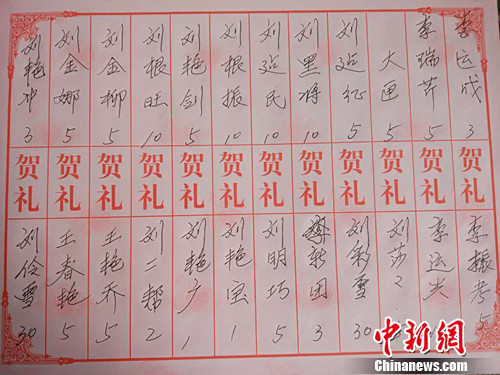 李运成 3
李瑞芹 5
大 5
刘运征 5
刘黑将 10
刘运民 10
刘根振 10
刘艳剑 5
刘根旺 10
刘金柳 5
刘金娜 5
刘艳冲 3
贺礼
贺礼
贺礼
贺礼
贺礼
贺礼
贺礼
贺礼
贺礼
贺礼
贺礼
贺礼
李振考 5
李运
刘莎
刘彩雪 30
团 3
刘明巧 5
刘艳宝 1
刘艳广 1
刘二帮 2
王艳乔 5
王春艳 5
刘伶雪 30
中新网
Chinanews.com